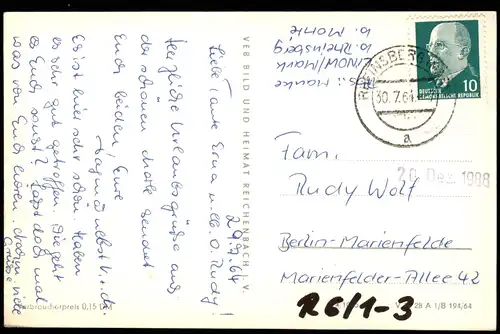 29.7.64
Liebe Tante Erna u. lb. O. Rudy!
Herzliche Urlaubsgrüße aus
der schönen Mark sendet
Euch beiden, Eure
Dagmar nebst
Es ist hier sehr schön. Haben
es sehr gut getroffen. Wie geht
es Euch sonst? Laßt doch mal
was von Euch hören. viele
Grüße
Verbraucherpreis 0,15 DM
VEB BILD UND HEIMAT REICHENBACH I. V.
b. Rheinsberg
RHEINSBERG
30.7.64
a
DEUTSCHE
DEMOKRATISCHE REPUBLIK
10
20. Dez. 1988
Fam.
Rudy Wolf
Berlin-Marienfelde
Marienfelder-Allee 42
R6/1-3
28 A 1/B 194/64